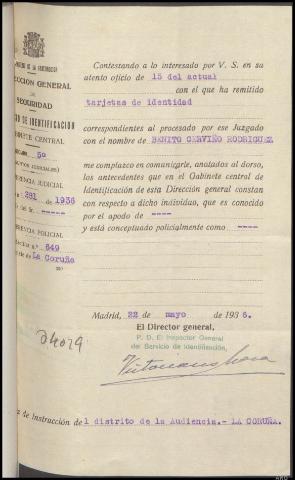 Contestando a lo interesado por V. S. en su
atento oficio de 15 del actual
con el que ha remitido
tarjetas de identidad
correspondientes al procesado por ese Juzgado
con el nombre de BENITO CERVIÑO RODRIGUEZ
me complazco en comunicarle, anotados al dorso,
los antecedentes que en el Gabinete central de
Identificación de esta Dirección general constan
con respecto a dicho individuo, que es conocido
por el apodo de ----
y está conceptuado policialmente como ----
Madrid, 22 de mayo de 1936.
El Director general,
P. D. El Inspector General
del Servicio de Identificación,
CCION GENERAL
DE
SEGURIDAD
O DE IDENTIFICACIÓN
BINETE CENTRAL
5º
ENCIA JUDICIAL
281 1936
ERENCIA POLICIAL
649
de La Coruña
24029
z de Instrucción del distrito de la Audiencia.- LA CORUÑA.